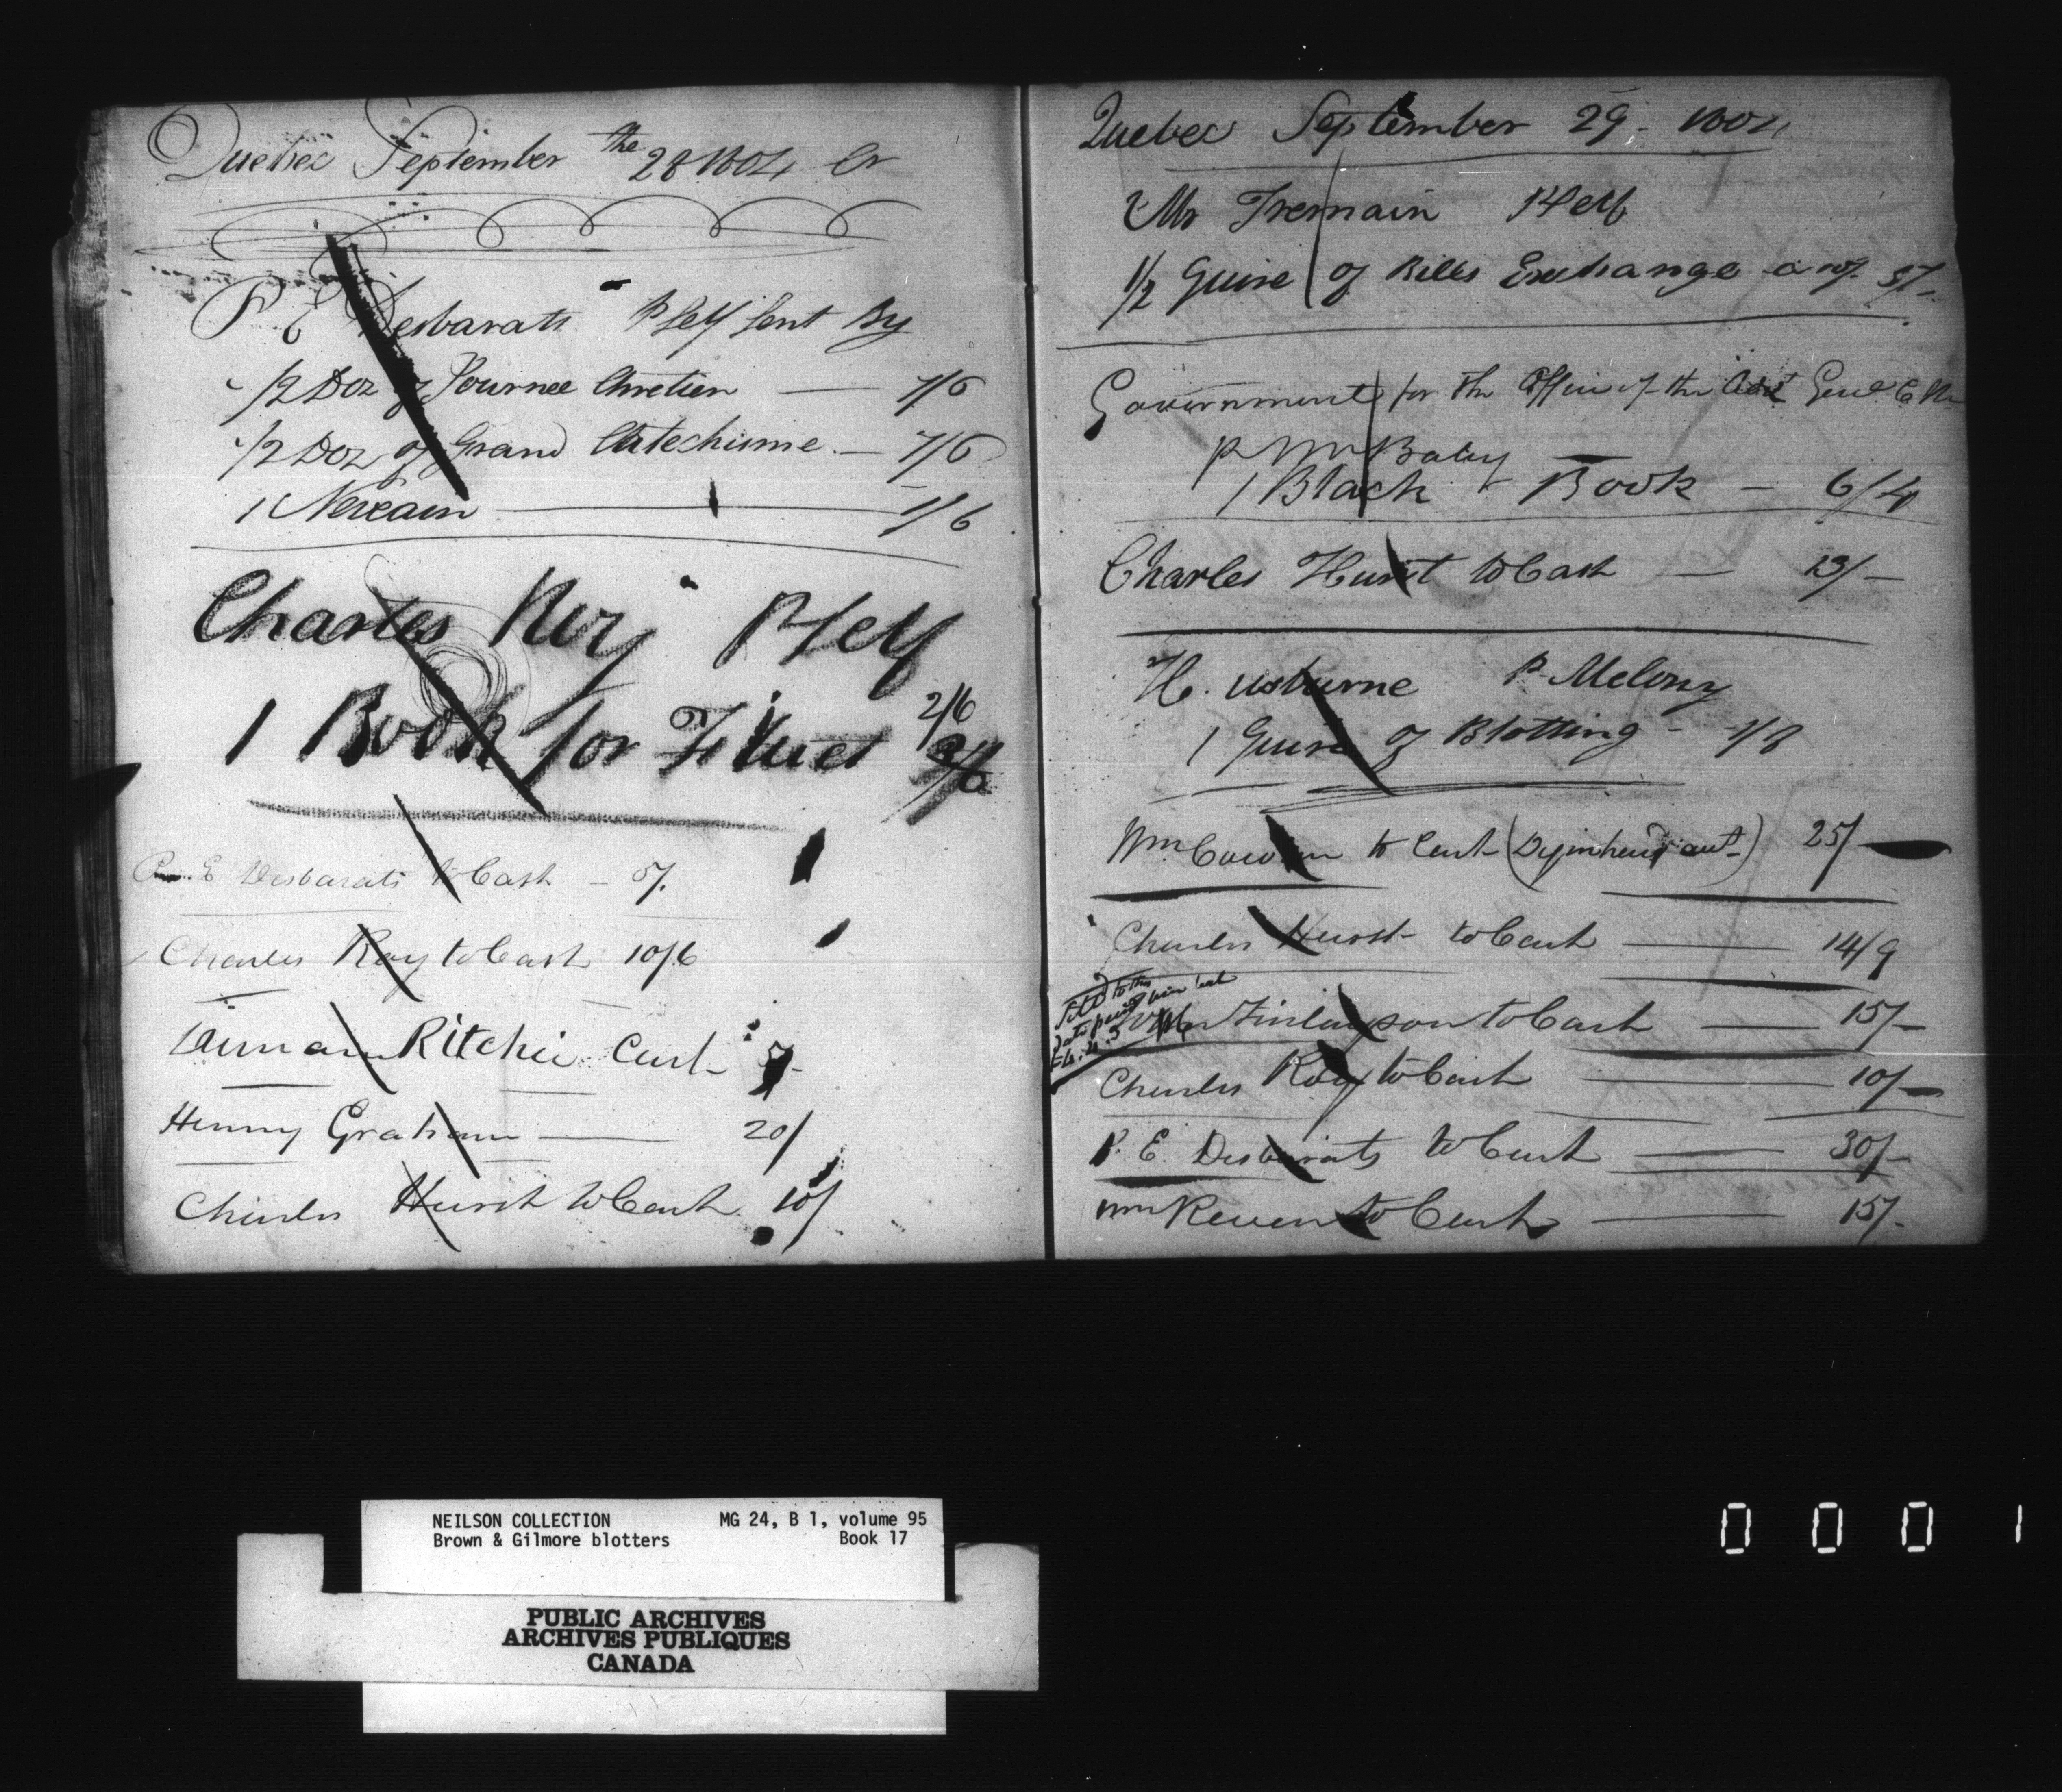 Quebec September the 28 1804 Cr
P E Desbarats P Self Sent By
1/2 Doz of Journee Chretien — 7/6
1/2 Doz of Grand Catechisme — 7/6
1 Nerxam — 1/6
Charles Roy P Self
1 Book for Filuet 2/6
P. E Desbarats to Cash — 5/.
Charles Roy to Cash 10/6
Ritchie Cash 5/-
Henry Graham — 20/
Charles Hurst to Cash 10/
Quebec September 29 - 1804
Mr Tremain P Self
1/2 Quire of Bills Exchange a 10/. 5/-
Government for the Office of the Adjt Genl C M
P Mr Baby
1 Black Book — 6/4
Charles Hurst to Cash — 13/-
H. usburne P Melony
1 Quire of Blotting - 1/8
Wm Cowan to Cash ( aut.) 25/-
Charles Hurst to Cash — 14/9
Settd to this
date
Finlayson to Cash — 15/-
Charles Roy to Cash — 10/-
P. E. Desbarats to Cash — 30/-
Wm Reven to Cash — 15/-
NEILSON COLLECTION MG 24, B 1, volume 95
Brown & Gilmore blotters Book 17
PUBLIC ARCHIVES
ARCHIVES PUBLIQUES
CANADA
0 0 0 1